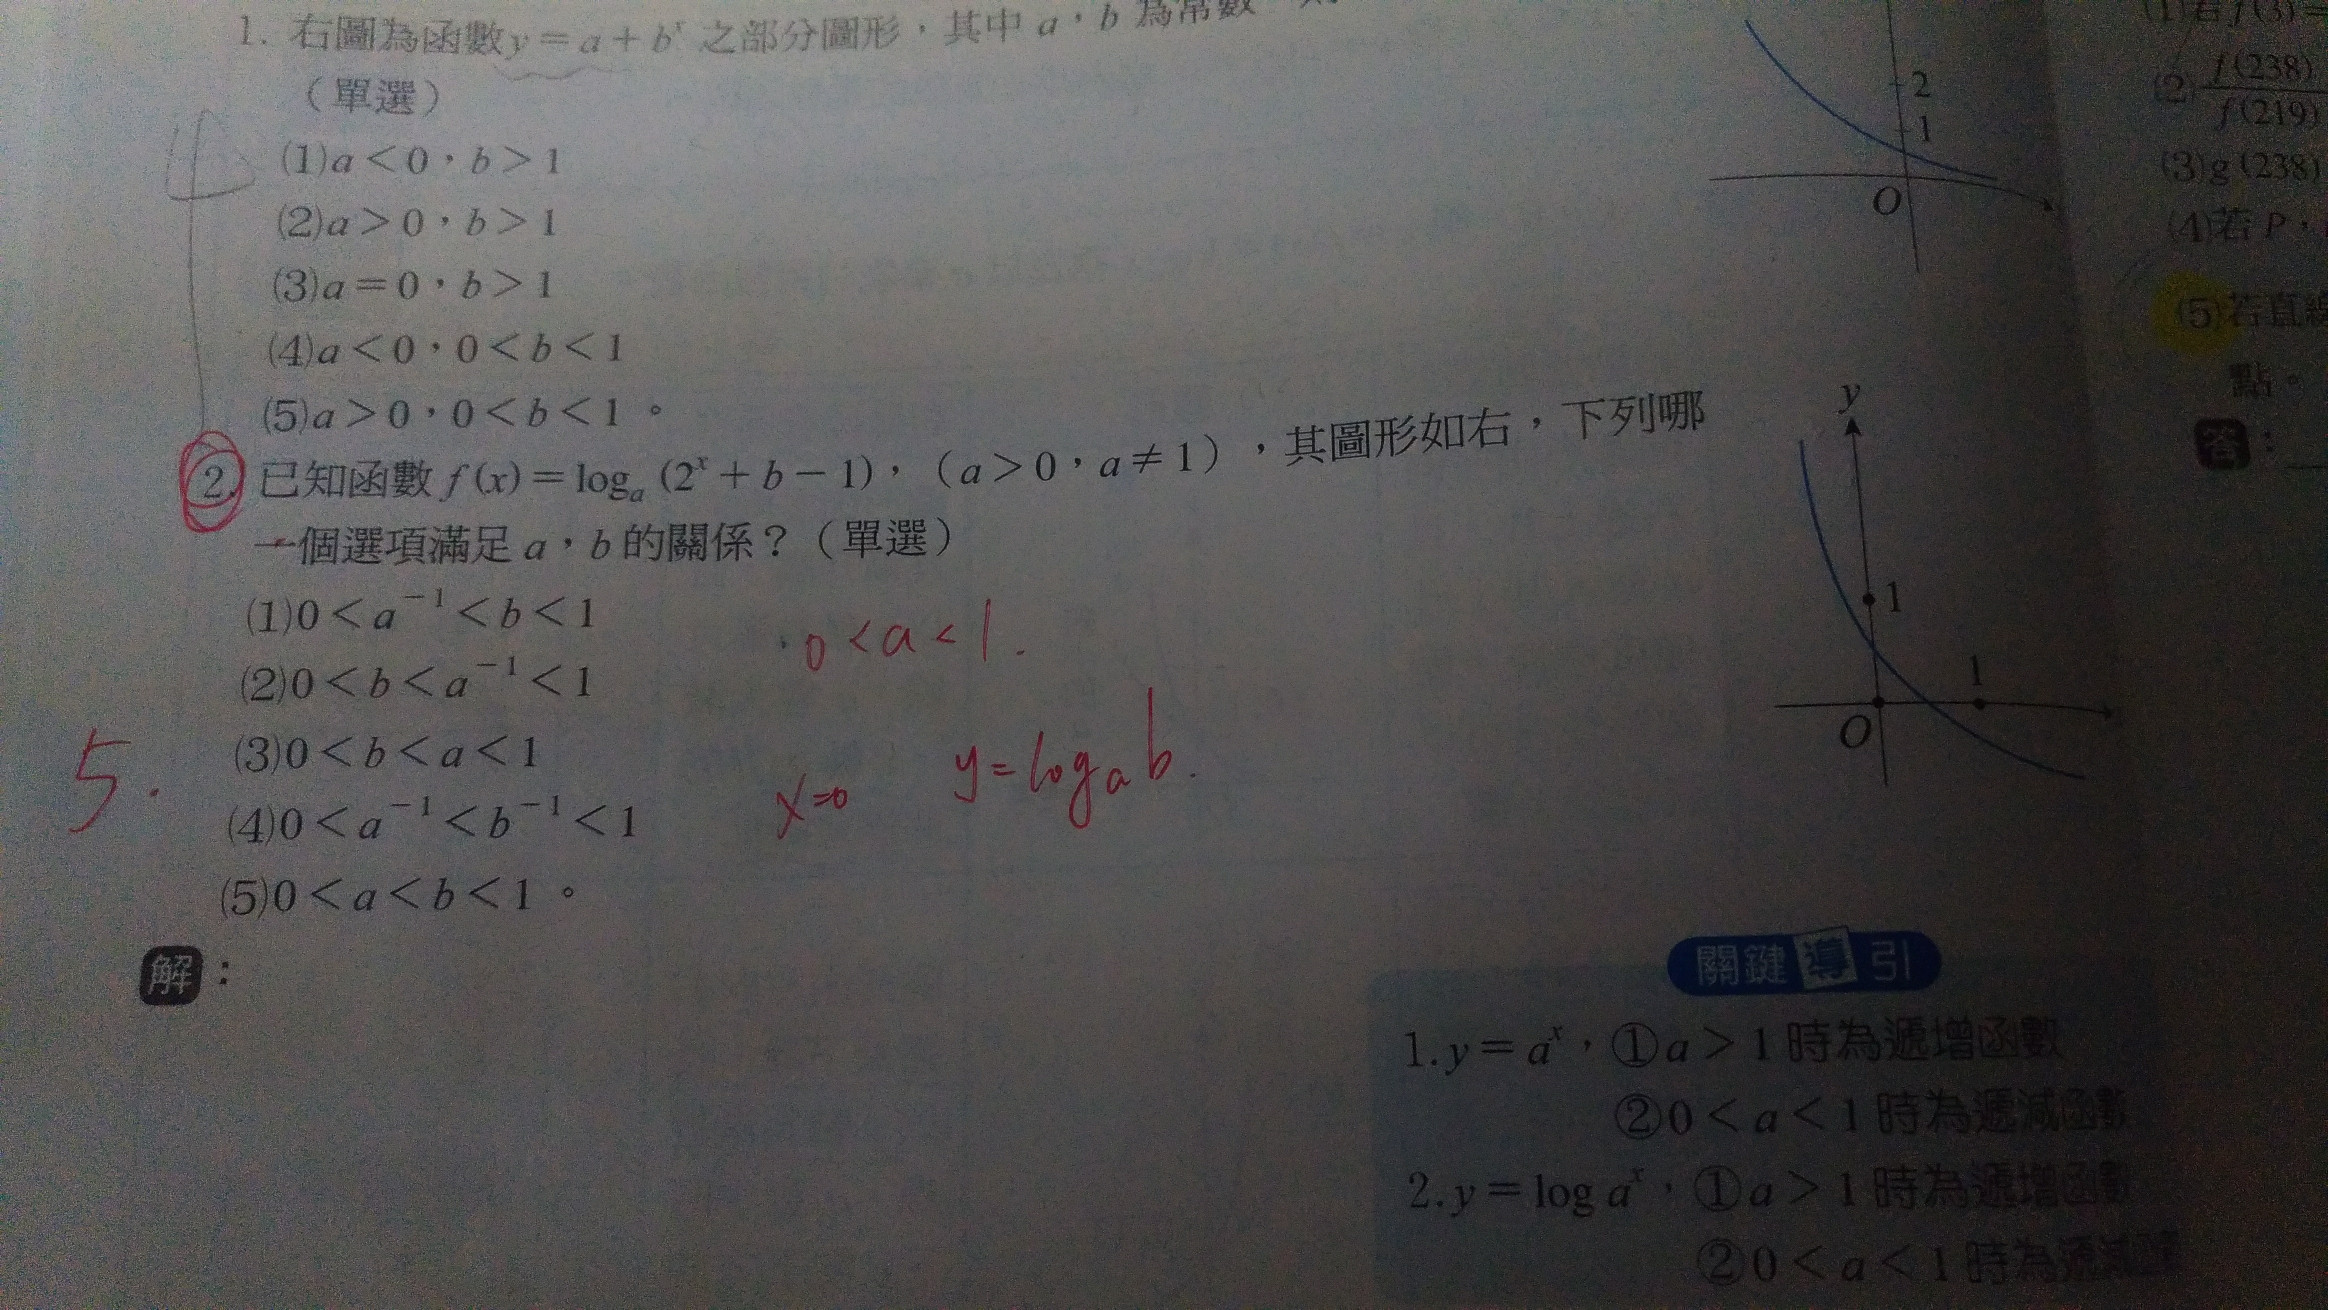 1. 右圖為函數y=a+bˣ 之部分圖形,其中 a,b 為常數,則
(單選)
(1)a<0,b>1
(2)a>0,b>1
(3)a=0,b>1
(4)a<0,0<b<1
(5)a>0,0<b<1。
2
1
O
2. 已知函數 f(x)=logₐ(2ˣ+b-1),(a>0,a≠1),其圖形如右,下列哪
一個選項滿足 a,b 的關係?(單選)
(1)0<a⁻¹<b<1
(2)0<b<a⁻¹<1
(3)0<b<a<1
(4)0<a⁻¹<b⁻¹<1
(5)0<a<b<1。
0<a<1.
x=0 y=logₐb.
5.
y
1
1
O
解:
關鍵導引
1.y=aˣ,①a>1時為遞增函數
②0<a<1時為遞減函數
2.y=log aˣ,①a>1時為遞增函數
②0<a<1時為遞減
(1)若f(3)=
(2) f(238)
f(219)
(3)g(238)
(4)若P,
(5)若直線
點。
答: